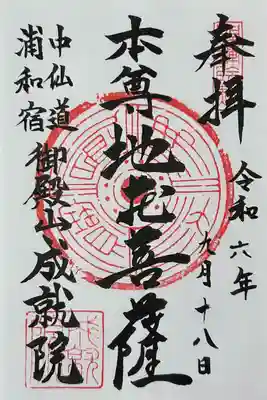 奉拝
令和六年
九月十八日
本尊地蔵菩薩
中仙道
浦和宿
御殿山成就院